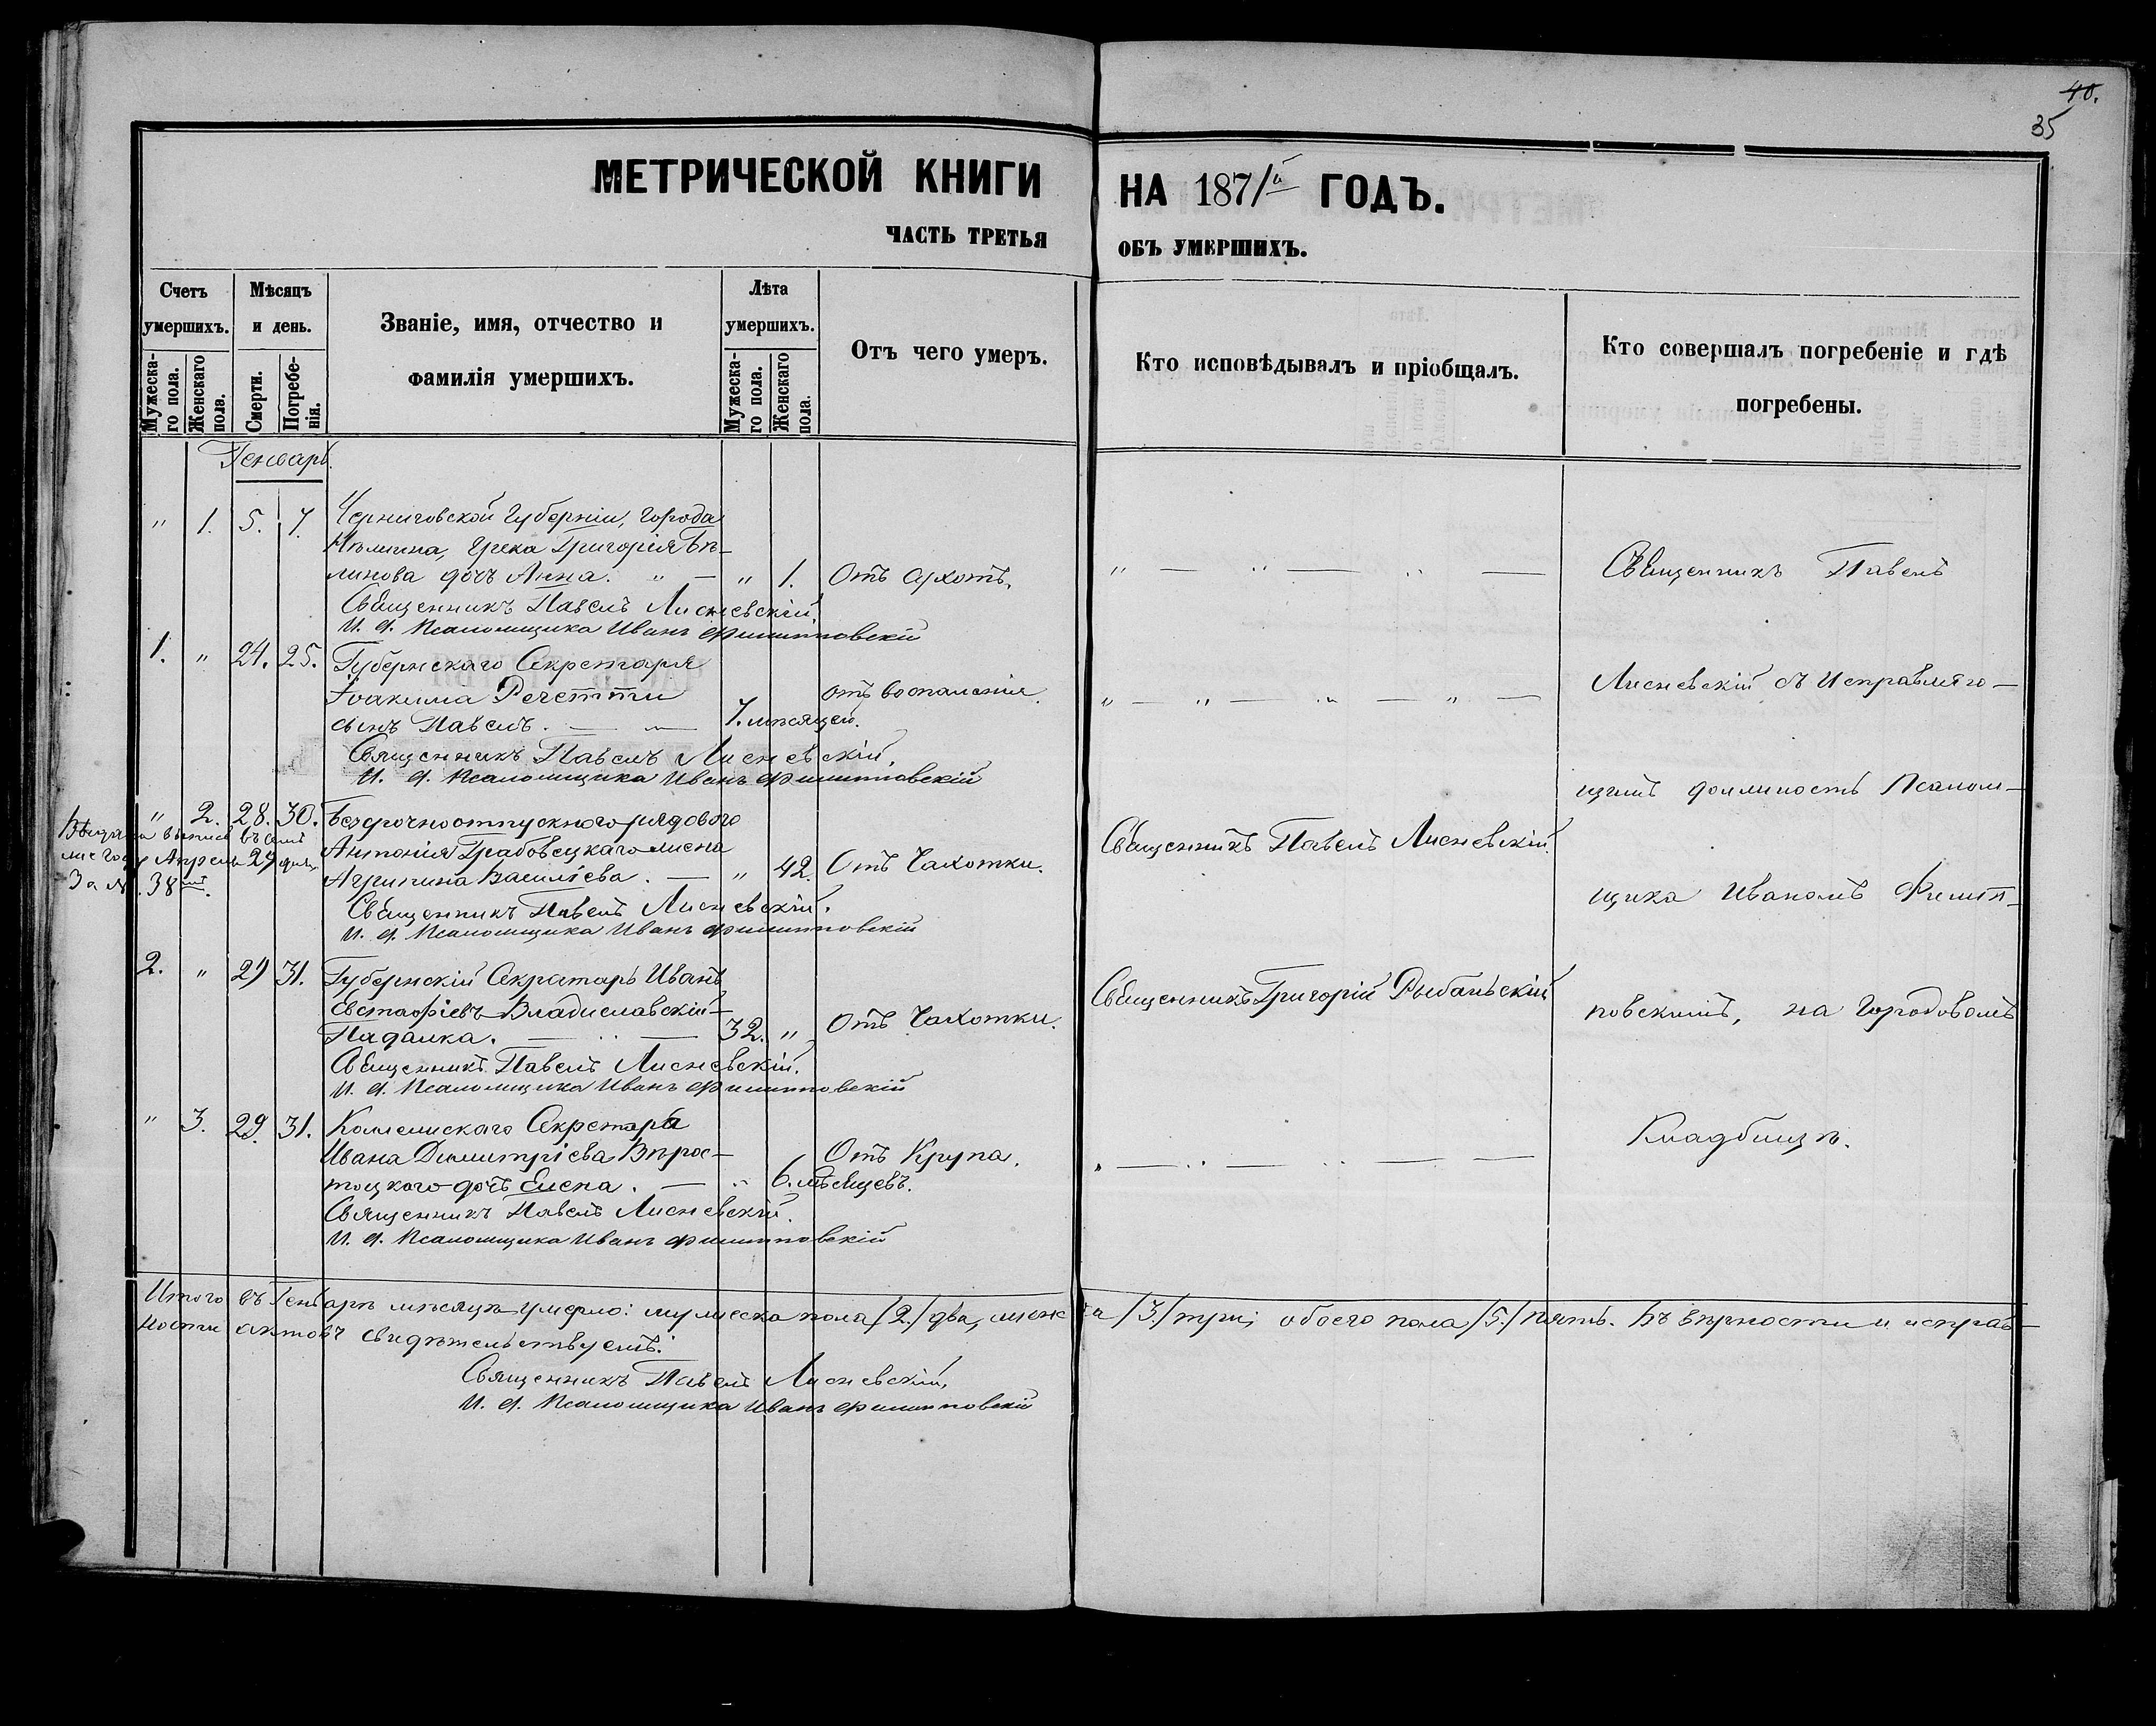 40.
35
МЕТРИЧЕСКОЙ КНИГИ НА 1871й ГОДЪ.
ЧАСТЬ ТРЕТЬЯ ОБЪ УМЕРШИХЪ.
Счетъ умершихъ.
Мужескаго пола.
Женскаго пола.
Мѣсяцъ и день.
Смерти.
Погребенія.
Званіе, имя, отчество и
фамилія умершихъ.
Лѣта умершихъ.
Мужескаго пола.
Женскаго пола.
Отъ чего умеръ.
Кто исповѣдывалъ и пріобщалъ.
Кто совершалъ погребеніе и гдѣ
погребены.
Генварь.
" 1. 5. 7. Черниговской Губерніи, города
Нѣжина, Грека Григорія Бѣ-
линова дочь Анна. " — " 1. Отъ сухотъ.
Священникъ Павелъ Лисневскій.
И. д. Псаломщика Иванъ Филипповскій
1. " 24. 25. Губернскаго Секретаря
Іоакима Речетти отъ воспаленія.
сынъ Павелъ. — — 7. мѣсяцей.
Священникъ Павелъ Лисневскій.
И. д. Псаломщика Иванъ Филипповскій
" 2. 28. 30. Безсрочноотпускного рядового
Антонія Грабовецкаго жена
Агрипина Васильева. — " 42. Отъ Чахотки. Священникъ Павелъ Лисневскій.
Священникъ Павелъ Лисневскій.
И. д. Псаломщика Иванъ Филипповскій
Выдана выпись въ семъ
же году Апреля 29 дня
За № 38мъ.
2. " 29 31. Губернскій Секратарь Иванъ
Евстафіевъ Владиславскій-
Падалка. — " — 32. " Отъ Чахотки. Священникъ Григорій Рыбальскій
Священникъ Павелъ Лисневскій.
И. д. Псаломщика Иванъ Филипповскій
" 3. 29. 31. Коллежскаго Секретаря
Ивана Димитріева Вѣрос- Отъ Крупа.
тоцкаго дочь Елена. — " 6. мѣсяцевъ.
Священникъ Павелъ Лисневскій.
И. д. Псаломщика Иванъ Филипповскій
Священникъ Павелъ
Лисневскій съ Исправляю-
щимъ должность Псалом-
щика Иваномъ Филип-
повскимъ, на Городовомъ
Кладбищѣ.
Итого въ Генварѣ мѣсяцѣ умерло: мужеска пола /2./ два, женска /3./ три; обоего пола /5./ пять. Въ вѣрности и исправ-
ности актовъ свидѣтельствуемъ:
Священникъ Павелъ Лисневскій,
И. д. Псаломщика Иванъ Филипповскій